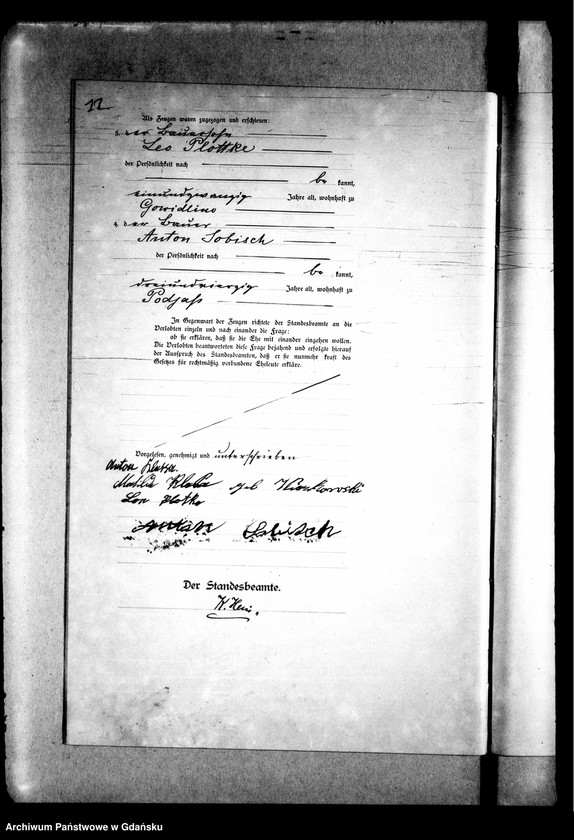 12
Als Zeugen waren zugezogen und erschienen:
3. der Bauersohn
Leo Plottke
der Persönlichkeit nach
be kannt,
einundzwanzig Jahre alt, wohnhaft zu
Gowidlino
4. der Bauer
Anton Sobisch
der Persönlichkeit nach
be kannt,
dreiundvierzig Jahre alt, wohnhaft zu
Podjaß
In Gegenwart der Zeugen richtete der Standesbeamte an die
Verlobten einzeln und nach einander die Frage:
ob sie erklären, daß sie die Ehe mit einander eingehen wollen.
Die Verlobten beantworteten diese Frage bejahend und erfolgte hierauf
der Ausspruch des Standesbeamten, daß er sie nunmehr kraft des
Gesetzes für rechtmäßig verbundene Eheleute erkläre.
Vorgelesen, genehmigt und unterschrieben
Anton
Matilde geb
Leon Plotka
Anton
Der Standesbeamte.
Archiwum Państwowe w Gdańsku